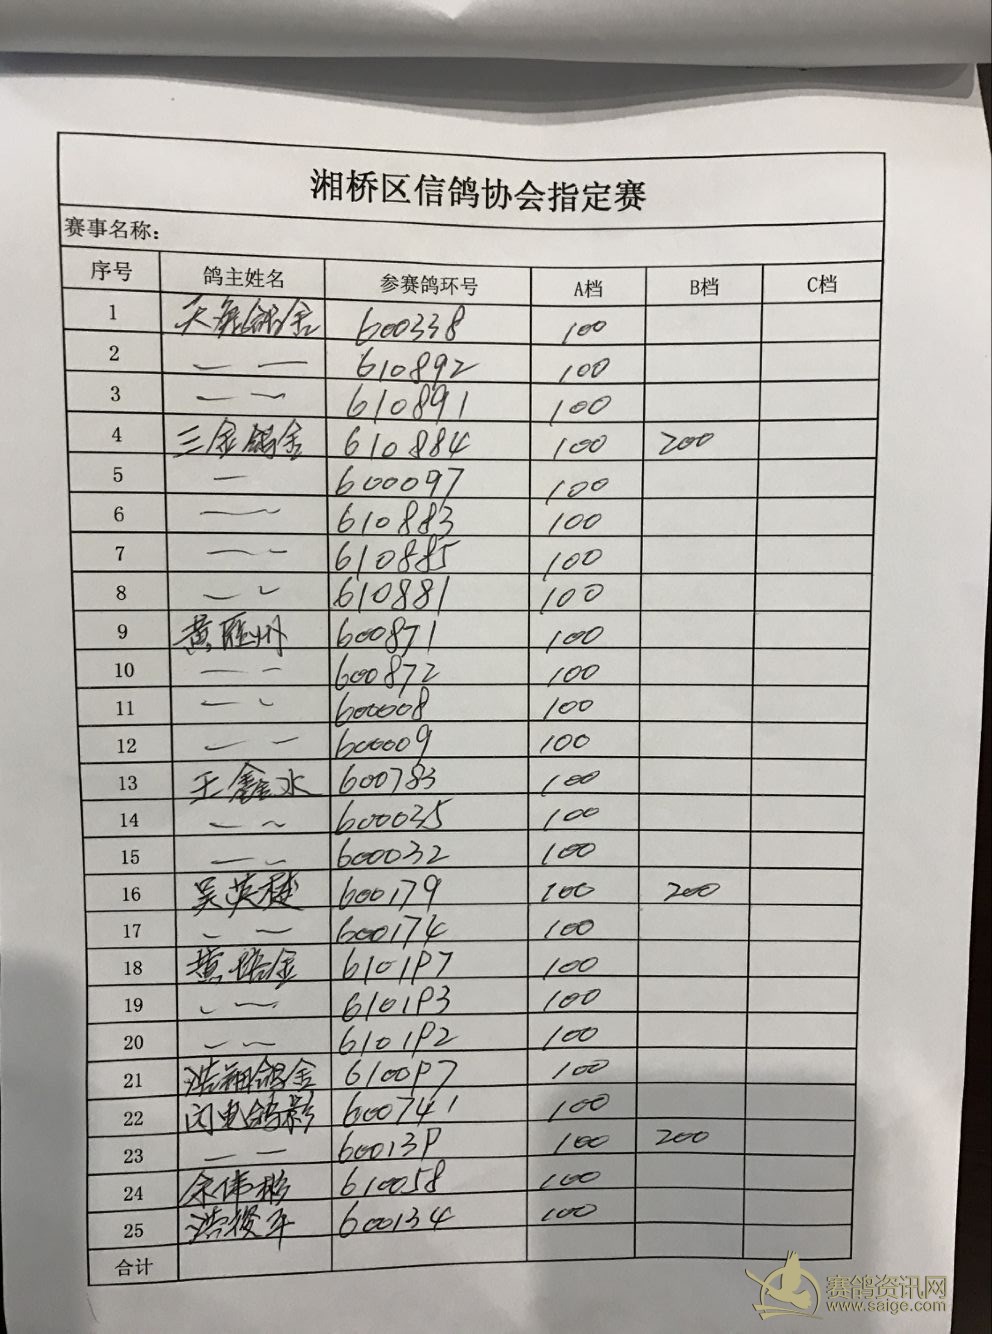 湘桥区信鸽协会指定赛
赛事名称：
序号 鸽主姓名 参赛鸽环号 A档 B档 C档
1 天 鸽舍 600338 100
2 — — 610892 100
3 — — 610891 100
4 三金鸽舍 610884 100 200
5 — 600097 100
6 — — 610883 100
7 — — 610885 100
8 — — 610881 100
9 黄雁州 600871 100
10 — — 600872 100
11 — — 600008 100
12 — — 600009 100
13 王鑫水 600783 100
14 — ~ 600035 100
15 — — 600032 100
16 吴英 600179 100 200
17 — — 600174 100
18 黄 金 6101P7 100
19 — — 6101P3 100
20 — — 6101P2 100
21 浩翔鸽舍 6100P7 100
22 闪电鸽影 600741 100
23 — — 60013P 100 200
24 余伟彬 610058 100
25 600134 100
合计
赛鸽资讯网
www.saige.com